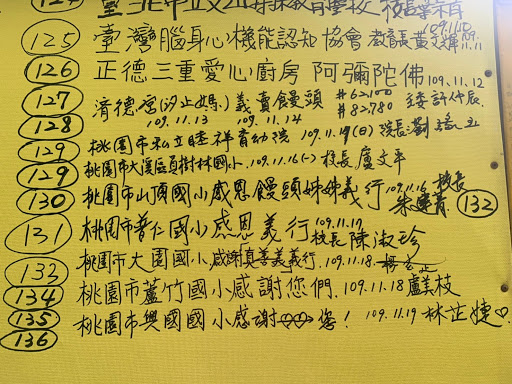 124 臺北市立文山特殊教育學校 校長 109.11.10
125 臺灣腦身心機能認知協會 教育長黃文雄 11.11
126 正德三重愛心廚房 阿彌陀佛 109.11.12
127 濟德宮(汐止媽)義賣饅頭 #62,100
128 109.11.13 109.11.14 #82,780
129 桃園市私立睦祥育幼院 109.11.14(日) 院長劉
129 桃園市大溪區員樹林國小 109.11.16(一) 校長 盧文平
130 桃園市山頂國小感恩饅頭姊妹義行 109.11.16 校長 132
131 桃園市普仁國小感恩義行 109.11.17 校長 陳淑珍
133 桃園市大園國小感謝真善美義行 109.11.18
134 桃園市蘆竹國小感謝您們 109.11.18 盧美枝
135 桃園市興國國小感謝♡♡您! 109.11.19 林芷婕♡
136